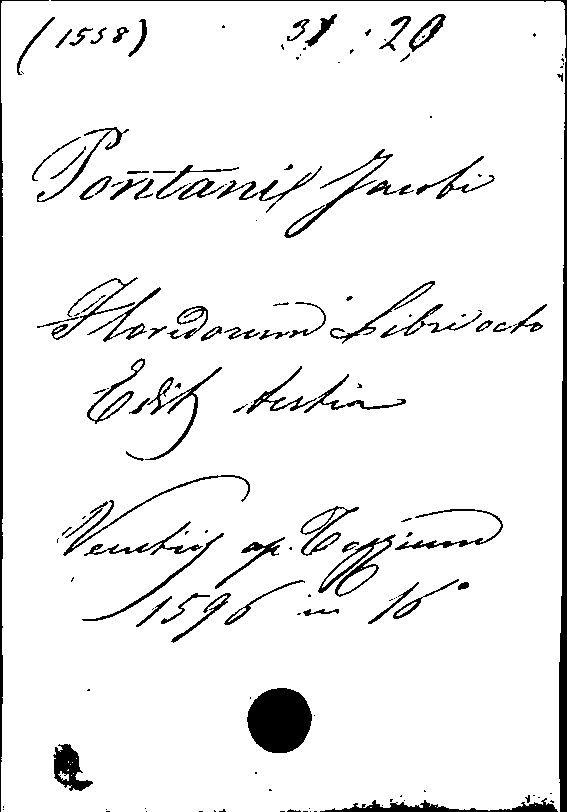 (1558) 31 : 20
Pontanij Jacobi
Floridorum Libri octo
Edit tertia
Venetiis ap.
1596 in 16°